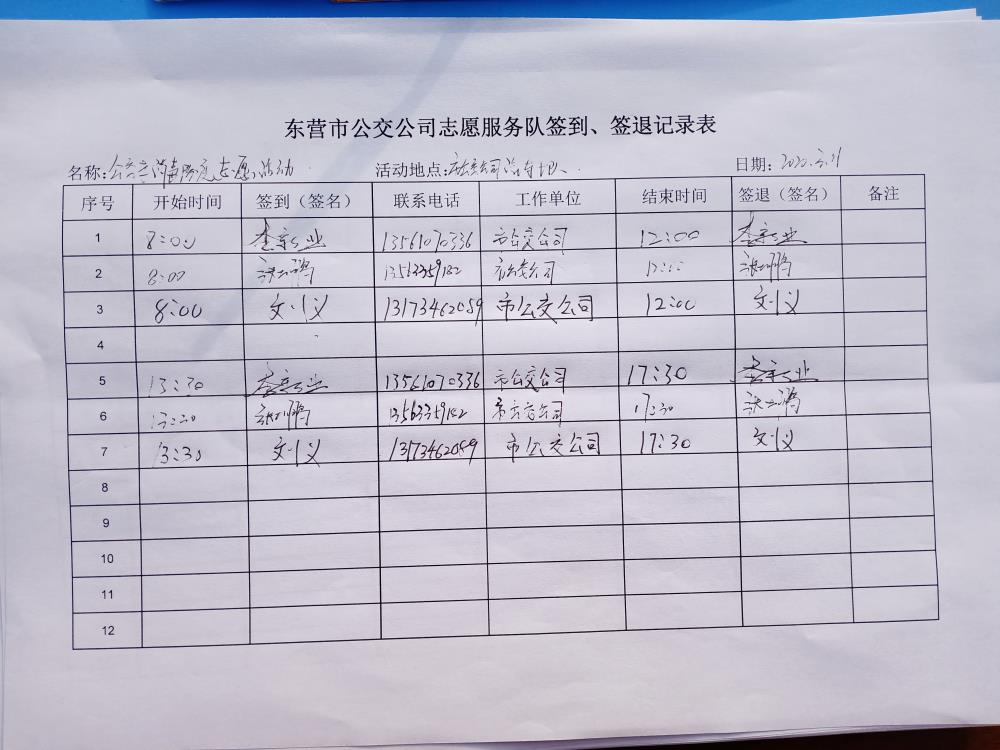 东营市公交公司志愿服务队签到、签退记录表
名称: 志愿活动 活动地点: 公司 日期: 2022.3.21
序号 开始时间 签到（签名） 联系电话 工作单位 结束时间 签退（签名） 备注
1 8:00 13561070336 市公交公司 12:00
2 8:00 13563359182 市公交公司 12:00
3 8:00 文小义 13173462059 市公交公司 12:00 文小义
4
5 13:30 13561070336 市公交公司 17:30
6 13:30 13563359182 市公交公司 17:30
7 13:30 文小义 13173462059 市公交公司 17:30 文小义
8
9
10
11
12